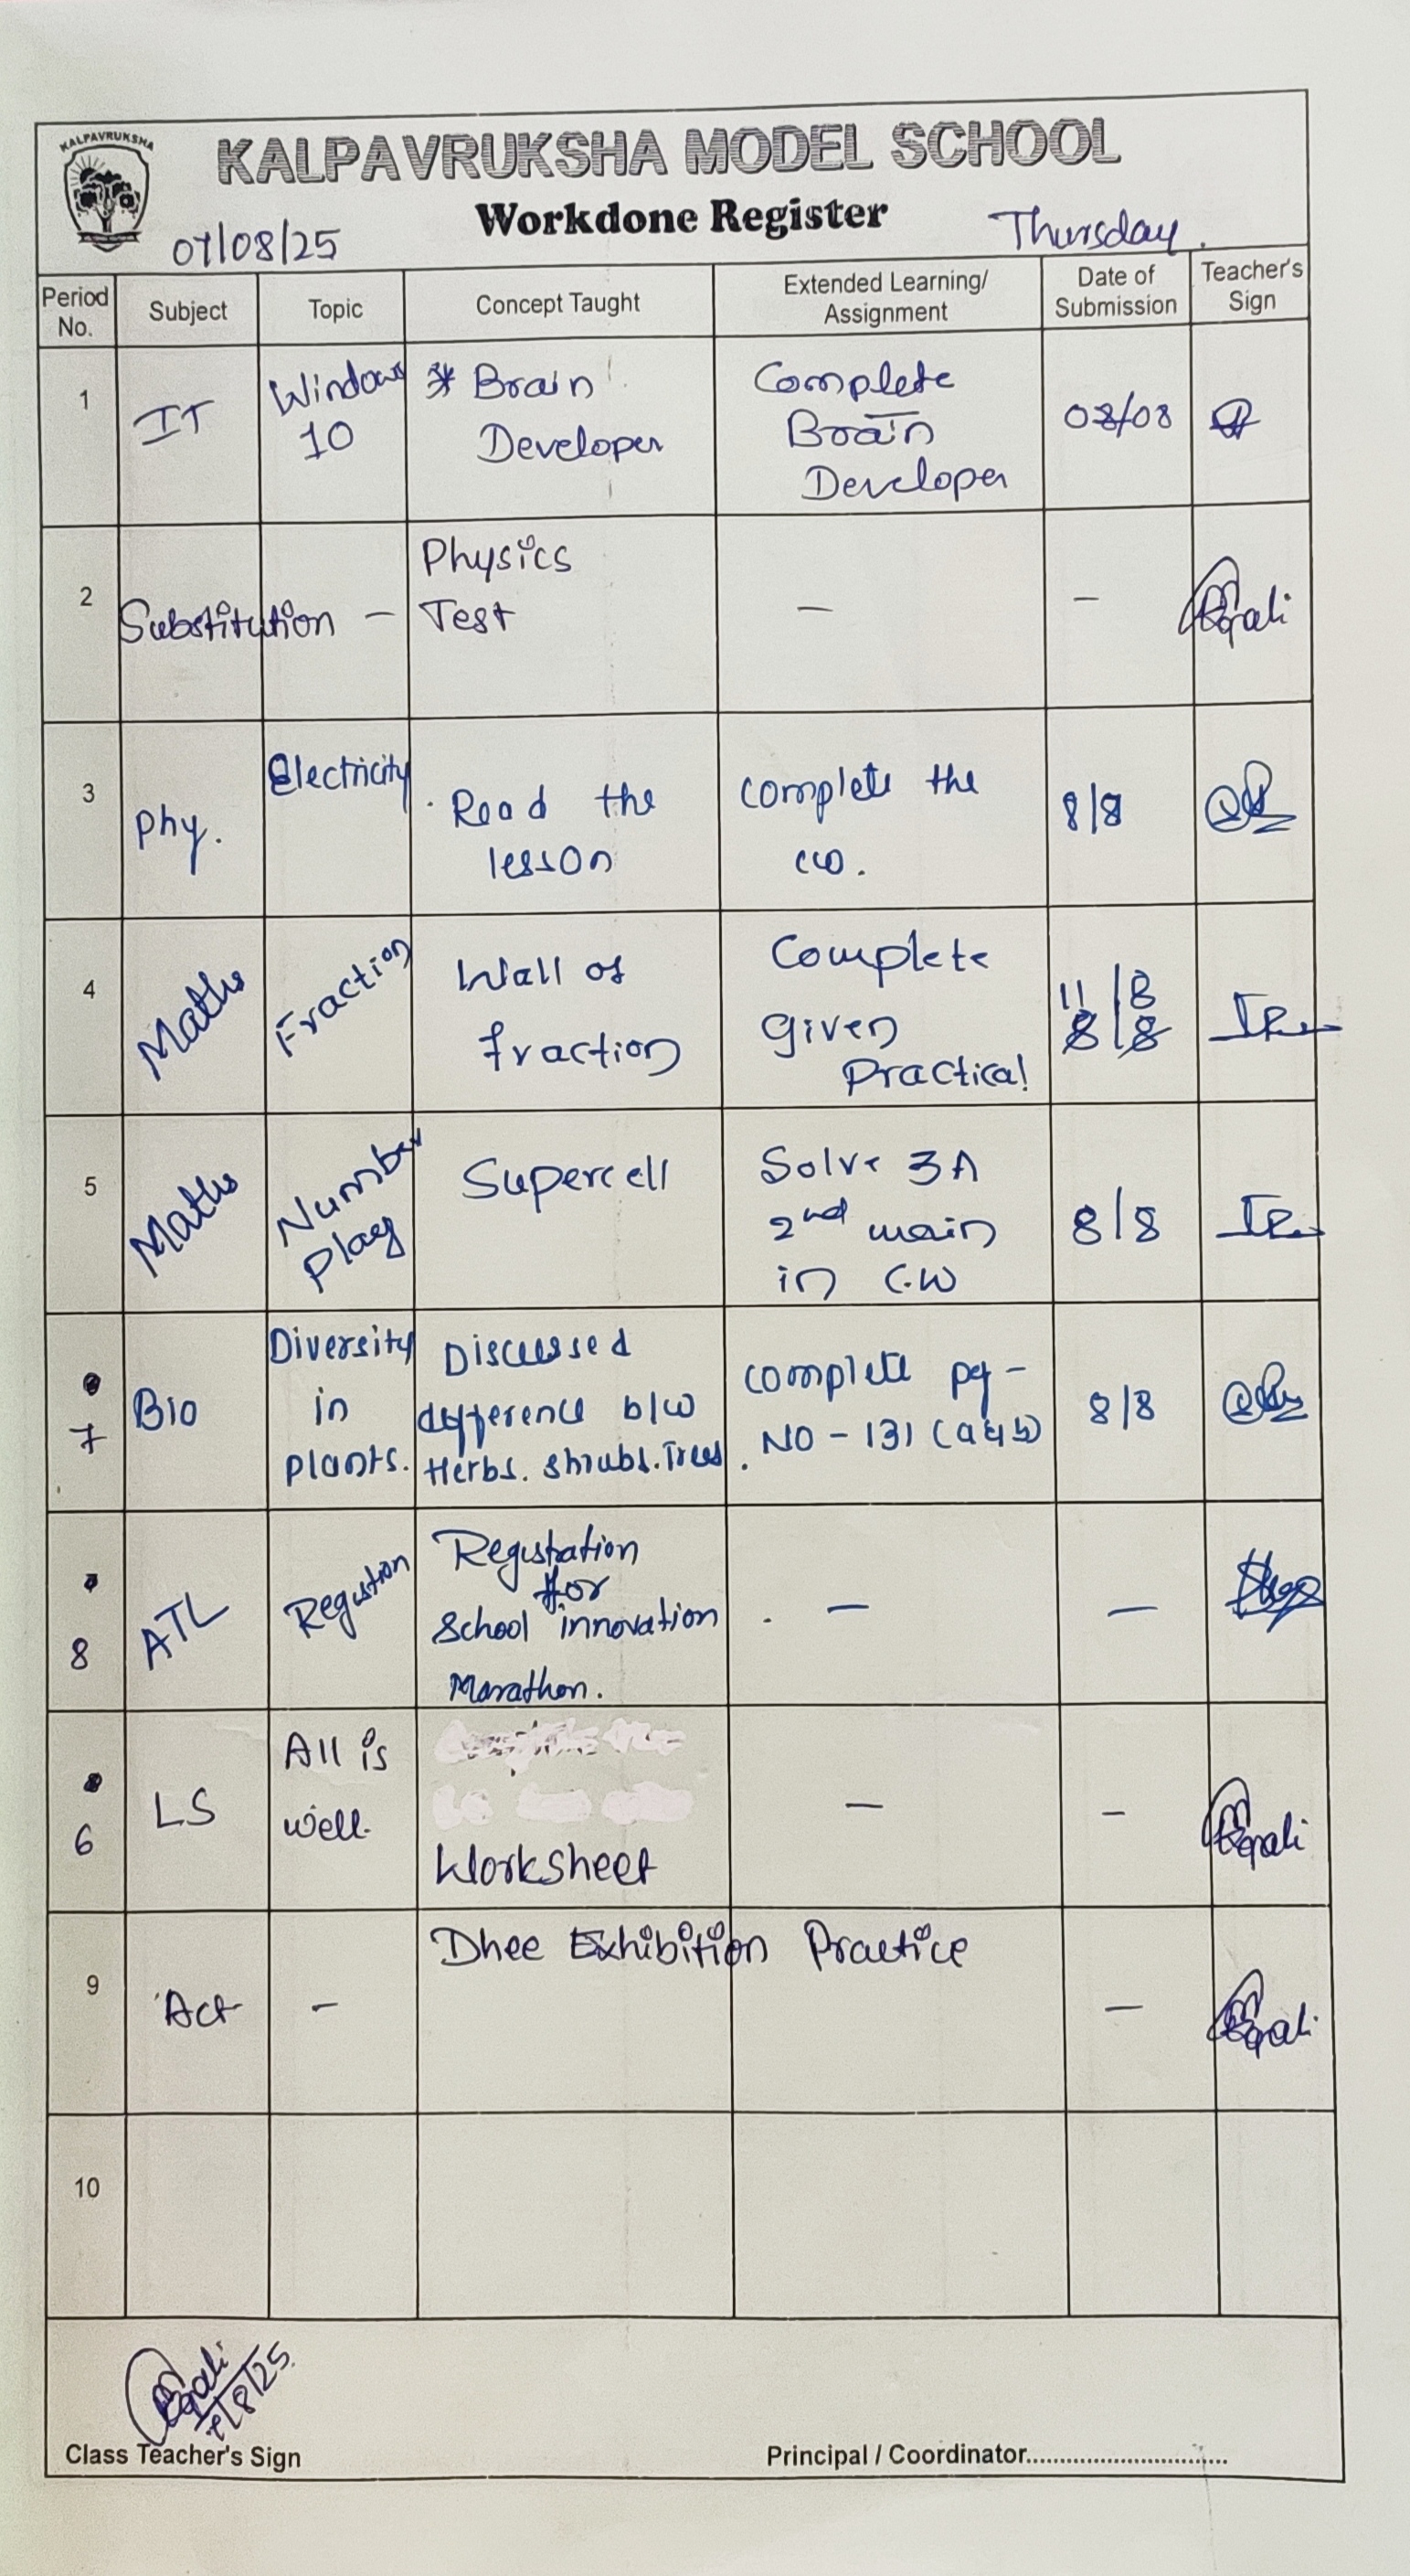 KALPAVRUKSHA
KALPAVRUKSHA MODEL SCHOOL
Workdone Register
07/08/25
Thursday.
Period No.
Subject
Topic
Concept Taught
Extended Learning/
Assignment
Date of
Submission
Teacher's
Sign
1
IT
Windows
10
* Brain
Developer
Complete
Brain
Developer
08/08
2
Substitution -
Physics
Test
-
-
3
Phy.
Electricity
. Read the
lesson
complete the
cw.
8/8
4
Maths
Fraction
Wall of
fraction
Complete
given
Practical
11/8
8/8
5
Maths
Number
play
Supercell
Solve 3A
2nd main
in C.W
8/8
7
Bio
Diversity
in
plants.
Discussed
difference b/w
Herbs. Shrubs. Trees
complete pg -
. NO - 131 (a & b)
8/8
8
ATL
Regustion
Regustration
for
School innovation
Marathon.
-
-
6
LS
All is
well.
Worksheet
-
-
9
Act
-
Dhee Exhibition Practice
-
10
7/8/25.
Class Teacher's Sign
Principal / Coordinator..............................